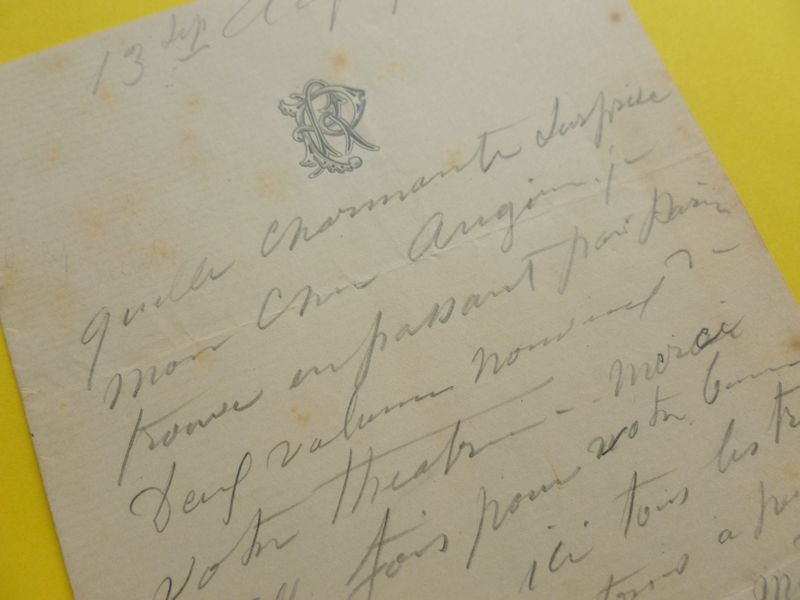 13 Sep
quelle charmante surprise
mon cher Augier. je
trouve en passant par Paris
Deux volumes nouveaux de
votre theatre - merci
fois pour votre bonne
ici tous les
tous a